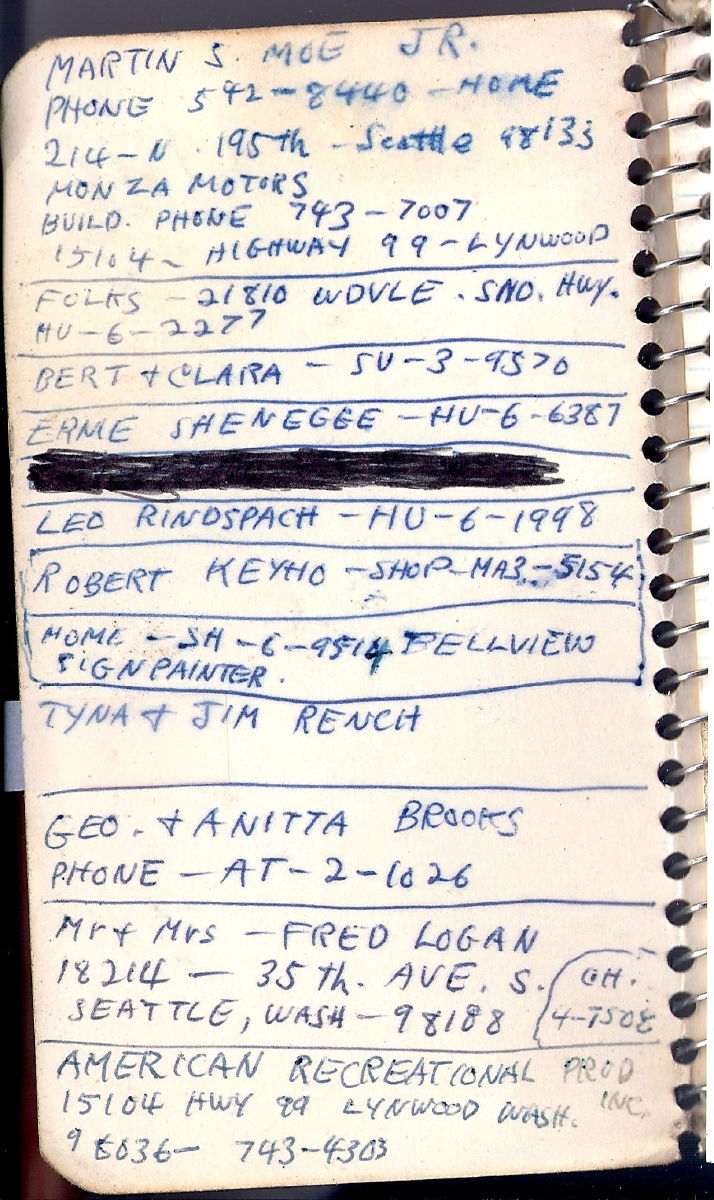 MARTIN S. MOE JR.
PHONE 542-8440 - HOME
214-N. 195th - Seattle 98133
MONZA MOTORS
BUILD. PHONE 743-7007
15104- HIGHWAY 99-LYNWOOD
FOLKS - 21810 WDVLE. SNO. Hwy.
HU-6-2277
BERT + CLARA - SU-3-9570
ERME SHENEGEE - HU-6-6387
LEO RINDSPACH - HU-6-1998
ROBERT KEYHO - SHOP-MA3-5154
HOME - SH-6-9514 BELLVIEW
SIGNPAINTER.
TYNA + JIM RENCH
GEO. + ANITTA BROOKS
PHONE - AT-2-1026
Mr + Mrs - FRED LOGAN
18214 - 35th. AVE. S.
SEATTLE, WASH - 98188
CH.
4-7508
AMERICAN RECREATIONAL PROD
INC.
15104 HWY 99 LYNWOOD WASH.
98036- 743-4303